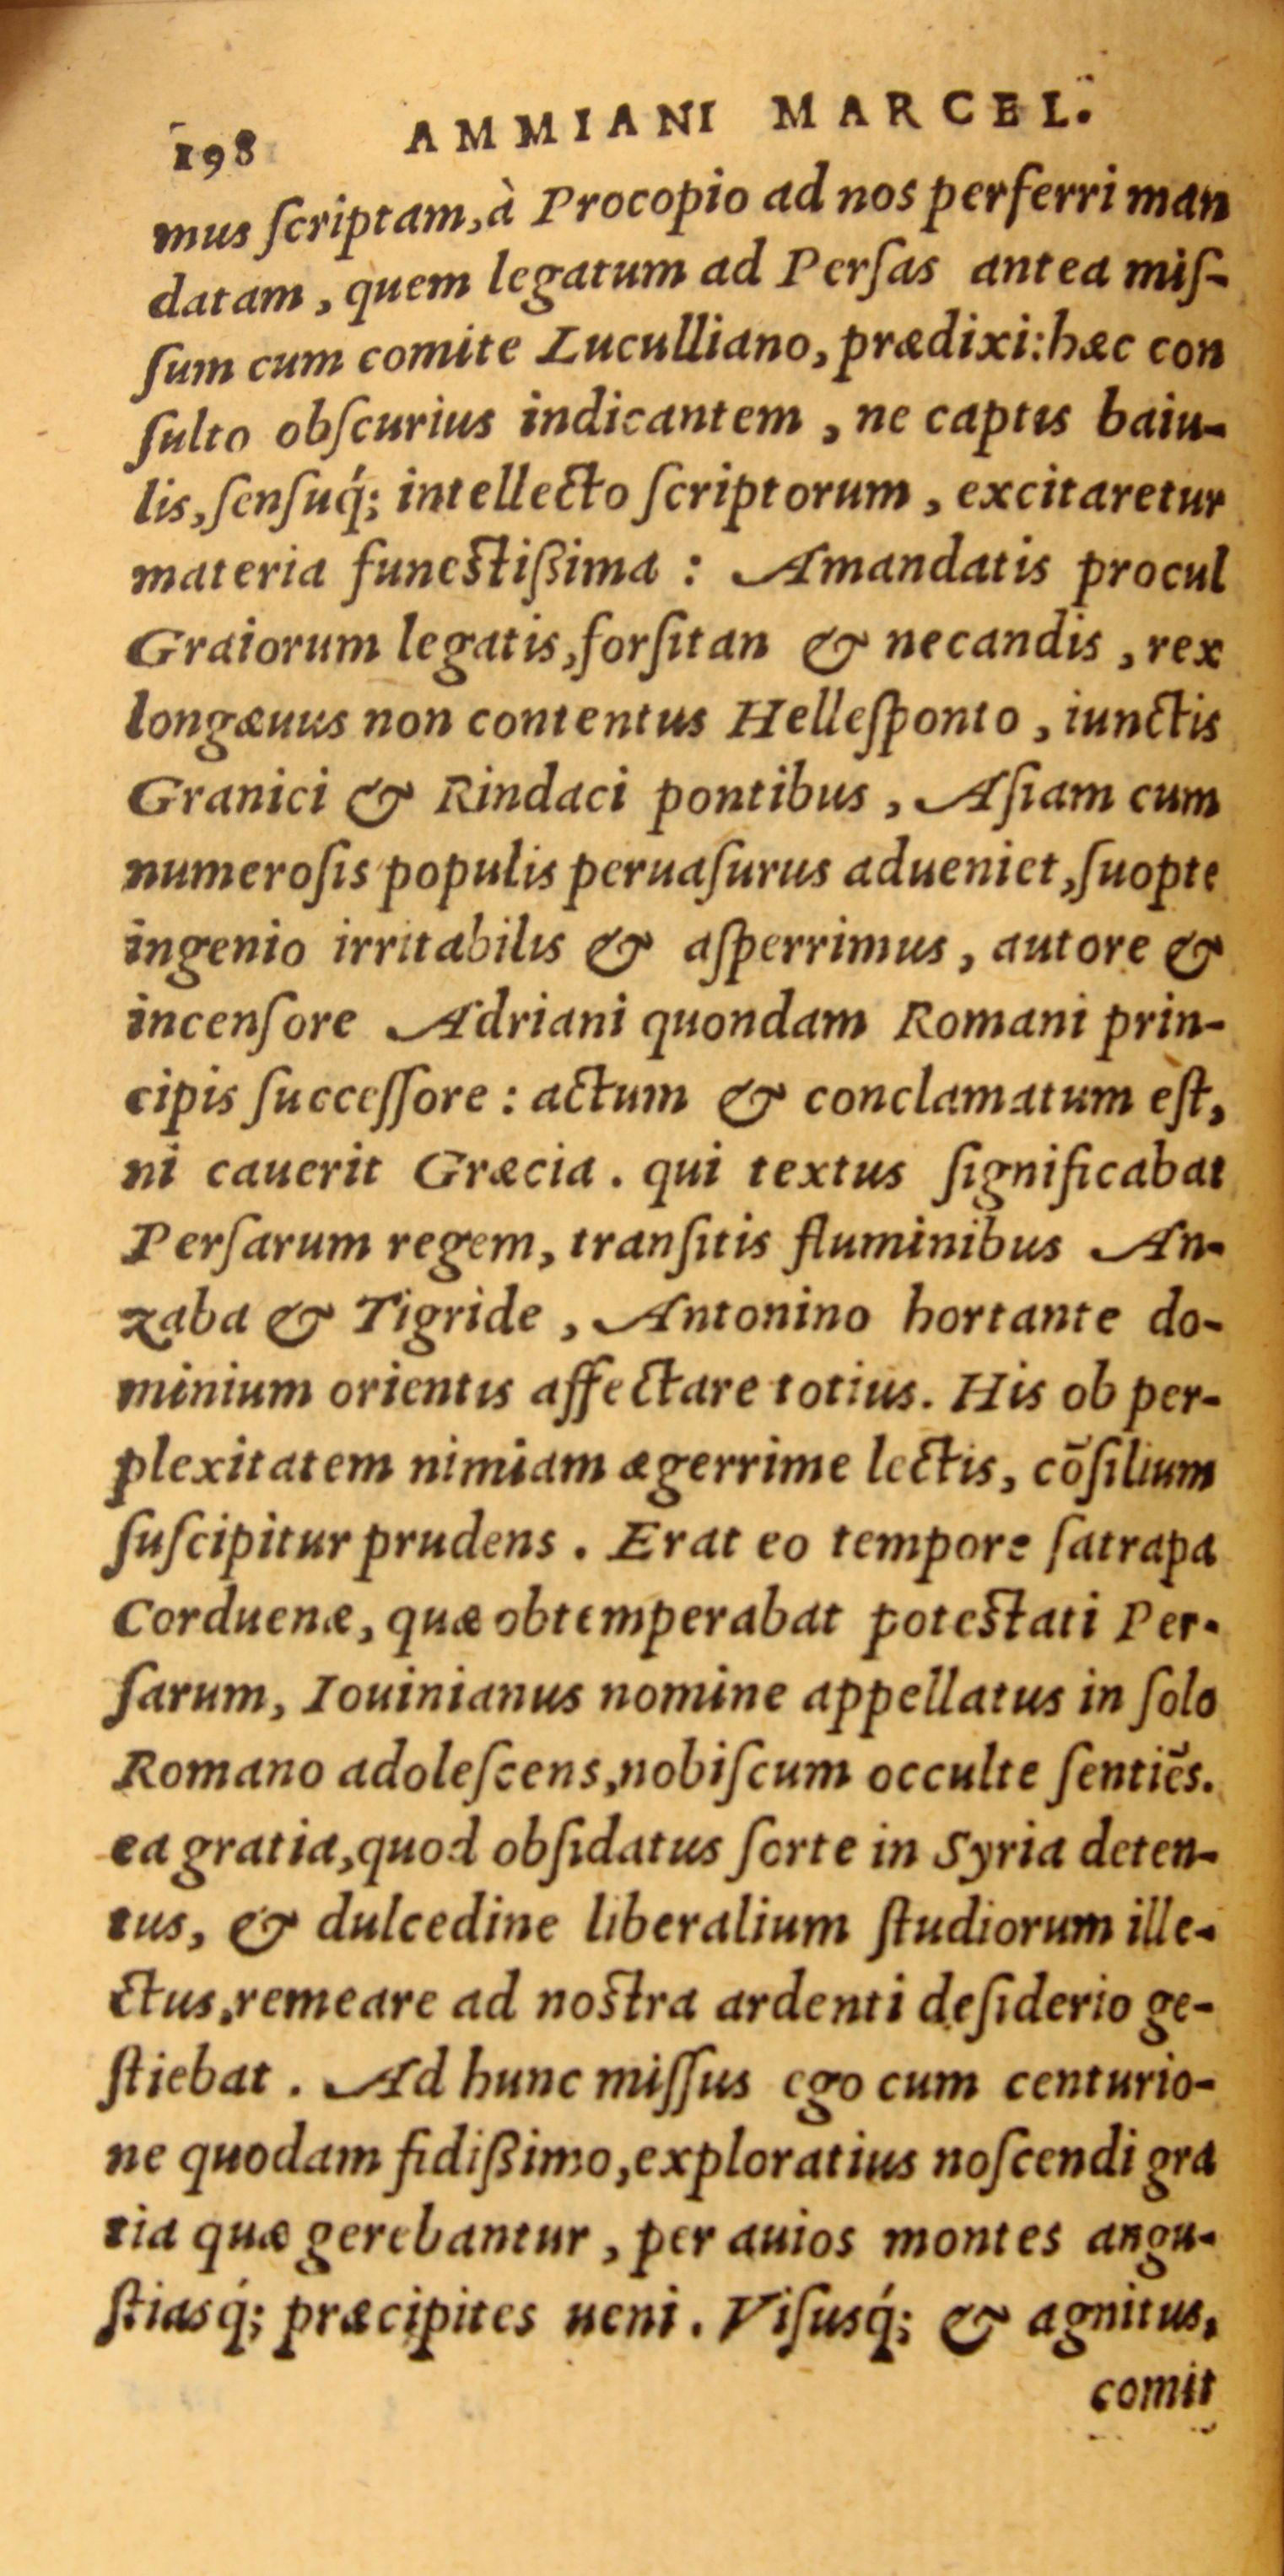 198 AMMIANI MARCEL.
mus ſcriptam, à Procopio ad nos perferri man
datam, quem legatum ad Perſas antea miſ-
ſum cum comite Luculliano, prædixi: hæc con
ſulto obſcurius indicantem, ne captis baiu-
lis, ſenſuq́; intellecto ſcriptorum, excitaretur
materia funeſtißima: Amandatis procul
Graiorum legatis, forſitan & necandis, rex
longæuus non contentus Helleſponto, iunctis
Granici & Rindaci pontibus, Aſiam cum
numeroſis populis peruaſurus adueniet, ſuopte
ingenio irritabilis & aſperrimus, autore &
incenſore Adriani quondam Romani prin-
cipis ſucceſſore: actum & conclamatum eſt,
ni cauerit Græcia. qui textus ſignificabat
Perſarum regem, tranſitis fluminibus An-
zaba & Tigride, Antonino hortante do-
minium orientis affectare totius. His ob per-
plexitatem nimiam ægerrime lectis, cõſilium
ſuſcipitur prudens. Erat eo tempore ſatrapa
Corduenæ, quæ obtemperabat poteſtati Per-
ſarum, Iouinianus nomine appellatus in ſolo
Romano adoleſcens, nobiſcum occulte ſentiẽs.
ea gratia, quod obſidatus ſorte in Syria deten-
tus, & dulcedine liberalium ſtudiorum ille-
ctus, remeare ad noſtra ardenti deſiderio ge-
ſtiebat. Ad hunc miſſus ego cum centurio-
ne quodam fidißimo, exploratius noſcendi gra
tia quæ gerebantur, per auios montes angu-
ſtiasq́; præcipites ueni. Viſusq́; & agnitus,
comit